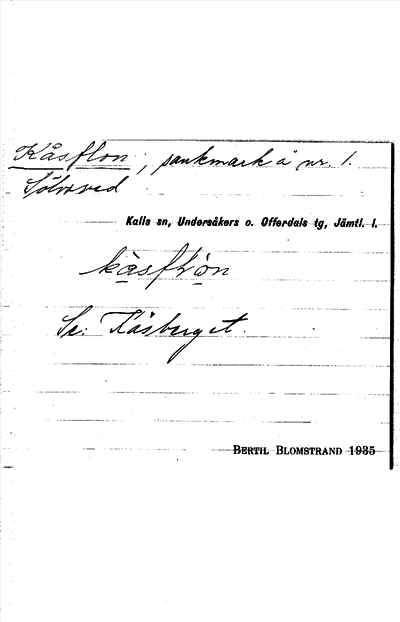 Kåsflon, sankmark å nr. 1.
Sölvsved
Kalls sn, Undersåkers o. Offerdals tg, Jämtl. l.
kåsflön
Se: Kåsberget.
BERTIL BLOMSTRAND 1935